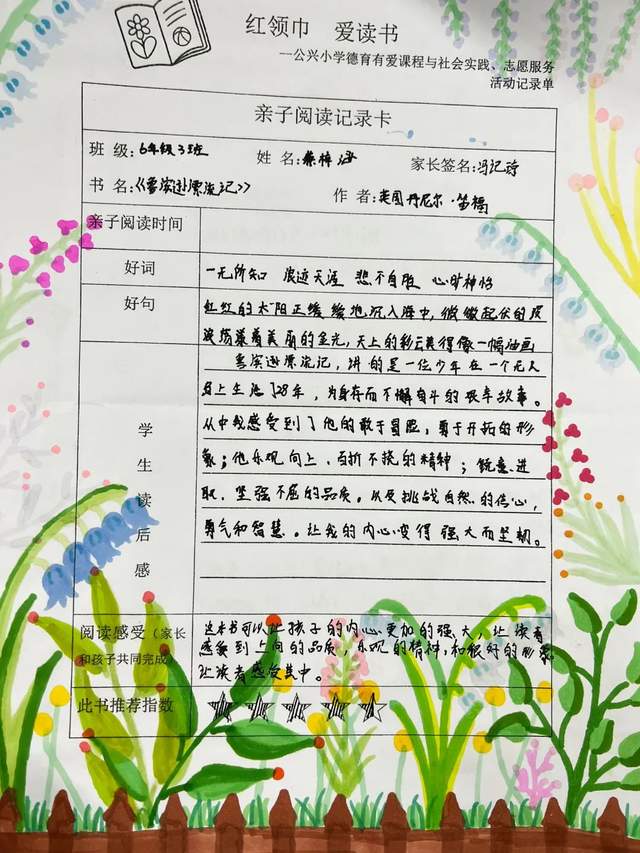 红领巾 爱读书
—公兴小学德育有爱课程与社会实践、志愿服务
活动记录单
亲子阅读记录卡
班 级:6年级3班 姓 名:蔡梓涵 家长签名:冯记
书 名:《鲁滨逊漂流记》 作 者:英国丹尼尔·笛福
亲子阅读时间
好词 一无所知 浪迹天涯 悲不自胜 心旷神怡
好句 红红的太阳正缓缓地沉入海中,微微起伏的
波荡漾着美丽的金光,天上的彩云美得像一幅油画
鲁滨逊漂流记,讲的是一位少年在一个无人
岛上生活了28年,为身存而不懈奋斗的艰辛故事。
学生读后感
从中我感受到了他的敢于冒险,勇于开拓的形
象;他乐观向上、百折不挠的精神;锐意进
取、坚强不屈的品质。以及挑战自然的信心,
勇气和智慧。让我的内心变得强大而坚韧。
阅读感受(家长
和孩子共同完成)
这本书可以让孩子的内心更加的强大,让读者
感象到上向的品质,乐观的精神,和很好的形象
让读者感受其中。
此书推荐指数